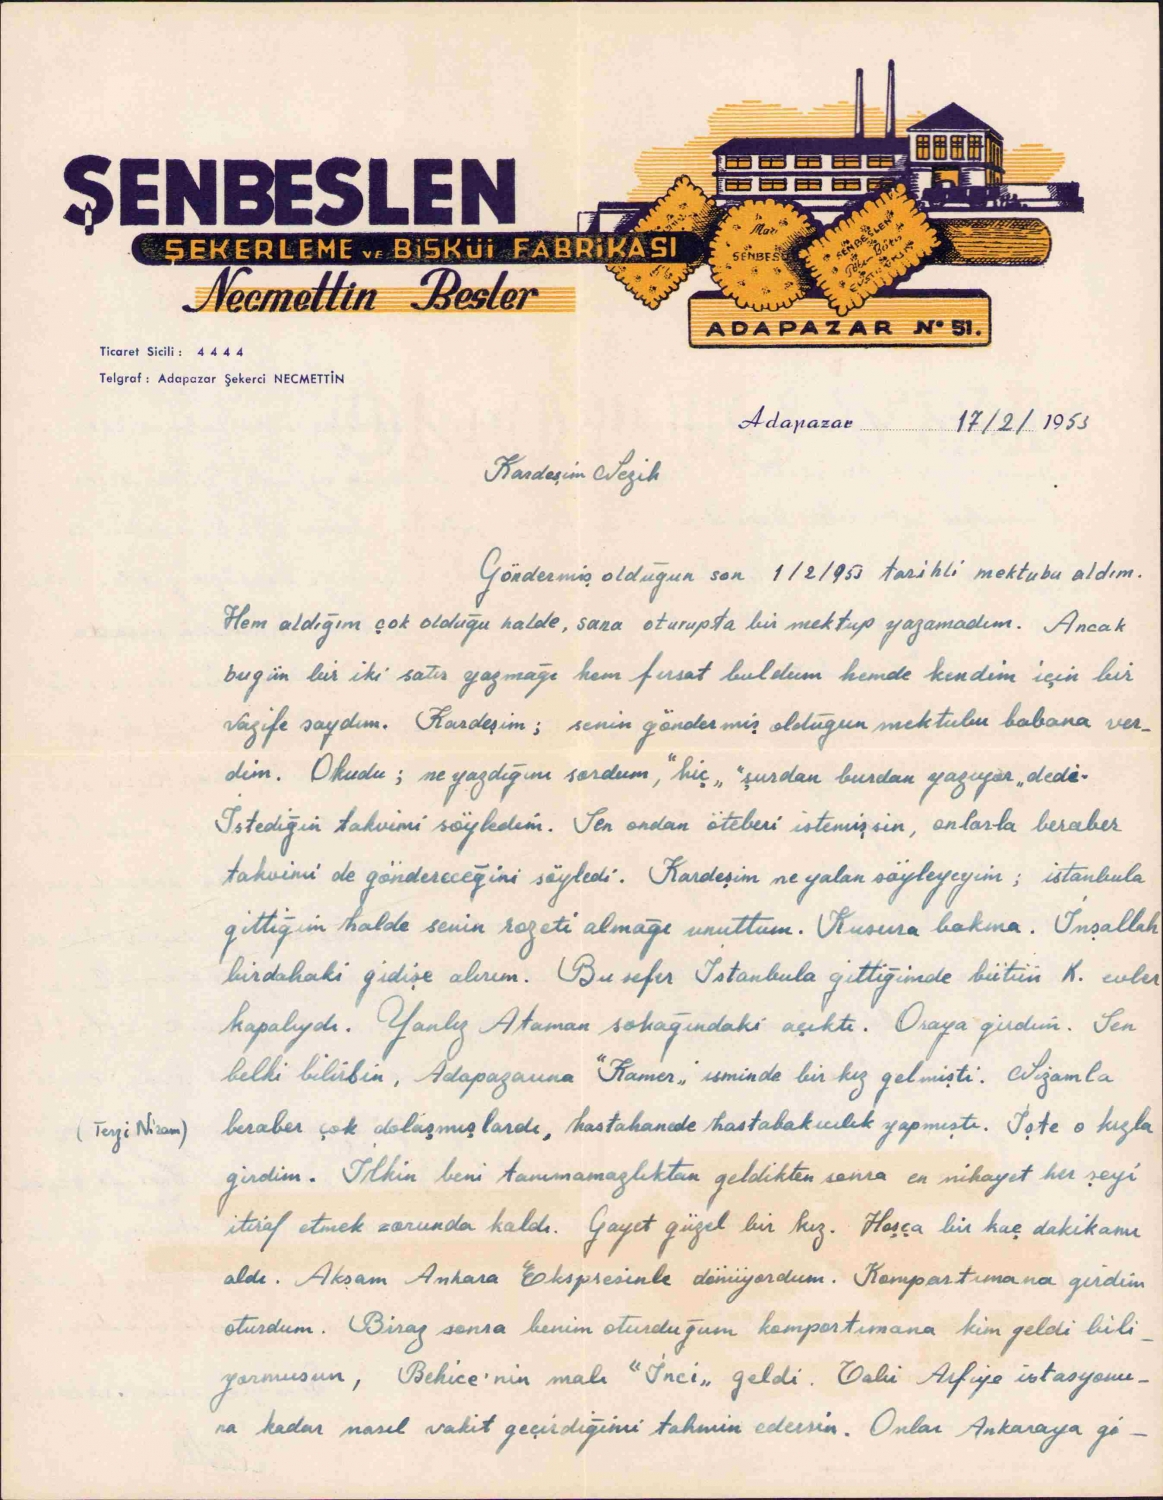 ŞENBESLEN
ŞEKERLEME VE BİSKÜİ FABRİKASI
Necmettin Besler
Mari
ŞENBES
ŞENBESLEN
ADAPAZAR No 51.
Ticaret Sicili : 4 4 4 4
Telgraf : Adapazar Şekerci NECMETTİN
Adapazar 17/2/ 1953
Kardeşim Nezih
Göndermiş olduğun son 1/2/953 tarihli mektubu aldım.
Hem aldığım çok olduğu halde, sana oturupta bir mektup yazamadım. Ancak
bugün bir iki satır yazmağı hem fırsat buldum hemde kendim için bir
vazife saydım. Kardeşim ; senin göndermiş olduğun mektubu babana ver-
dim. Okudu ; ne yazdığını sordum, "hiç" "şurdan burdan yazıyor" dedi.
İstediğin takvimi söyledim. Sen ondan öteberi istemişsin, onlarla beraber
takvimi de göndereceğini söyledi. Kardeşim ne yalan söyleyeyim ; istanbula
gittiğim halde senin rozeti almağı unuttum. Kusura bakma. İnşallah
birdahaki gidişe alırım. Bu sefer İstanbula gittiğimde bütün K. evler
kapalıydı. Yanlız Ataman sokağındaki açıktı. Oraya girdim. Sen
belki bilirsin, Adapazarına "Kamer" isminde bir kız gelmişti. Nizamla
(Terzi Nizam) beraber çok dolaşmışlardı, hastahanede hastabakıcılık yapmıştı. İşte o kızla
girdim. İlkin beni tanımamazlıktan geldikten sonra en nihayet her şeyi
itiraf etmek zorunda kaldı. Gayet güzel bir kız. Hoşça bir kaç dakikamı
aldı. Akşam Ankara Ekspresinle dönüyordum. Kompartımana girdim
oturdum. Biraz sonra benim oturduğum kompartımana kim geldi bili-
yormusun, Behice'nin malı "İnci" geldi. Tabi Arfiye istasyonu-
na kadar nasıl vakit geçirdiğimi tahmin edersin. Onlar Ankaraya gi-